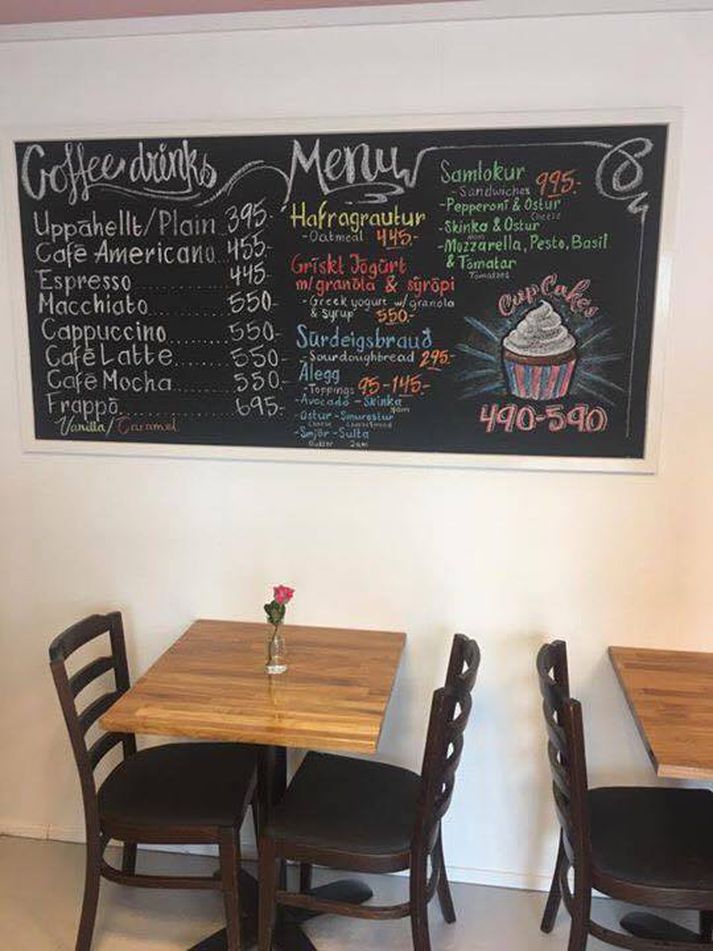 Coffee drinks
Uppáhellt/Plain 395.-
Café Americano 455.-
Espresso 445-
Macchiato 550.
Cappuccino 550-
Café Latte 550-
Café Mocha 550.-
Frappó 695.-
Vanilla/Caramel
Menu
Hafragrautur
-Oatmeal 445.-
Grískt Jógúrt
m/granóla & sýrópi
-Greek yogurt w/granola
& syrup 550.-
Súrdeigsbrauð
-Sourdoughbread 295.-
Álegg
-Toppings 95-145.-
-Avocado -Skinka
Ham
-Ostur -Smurostur
Cheese
-Smjör -Sulta
Butter Jam
Samlokur
-Sandwiches 995.-
-Pepperoni & Ostur
Cheese
-Skinka & Ostur
Ham
-Mozzarella, Pesto, Basil
& Tómatar
Tomatoes
CupCakes
490-590